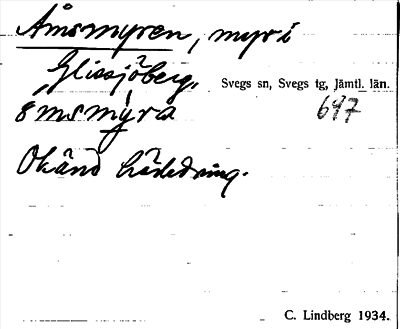 Åmsmyren, myr i
Glissjöberg,
Svegs sn, Svegs tg, Jämtl. län.
647
Okänd härledning.
C. Lindberg 1934.